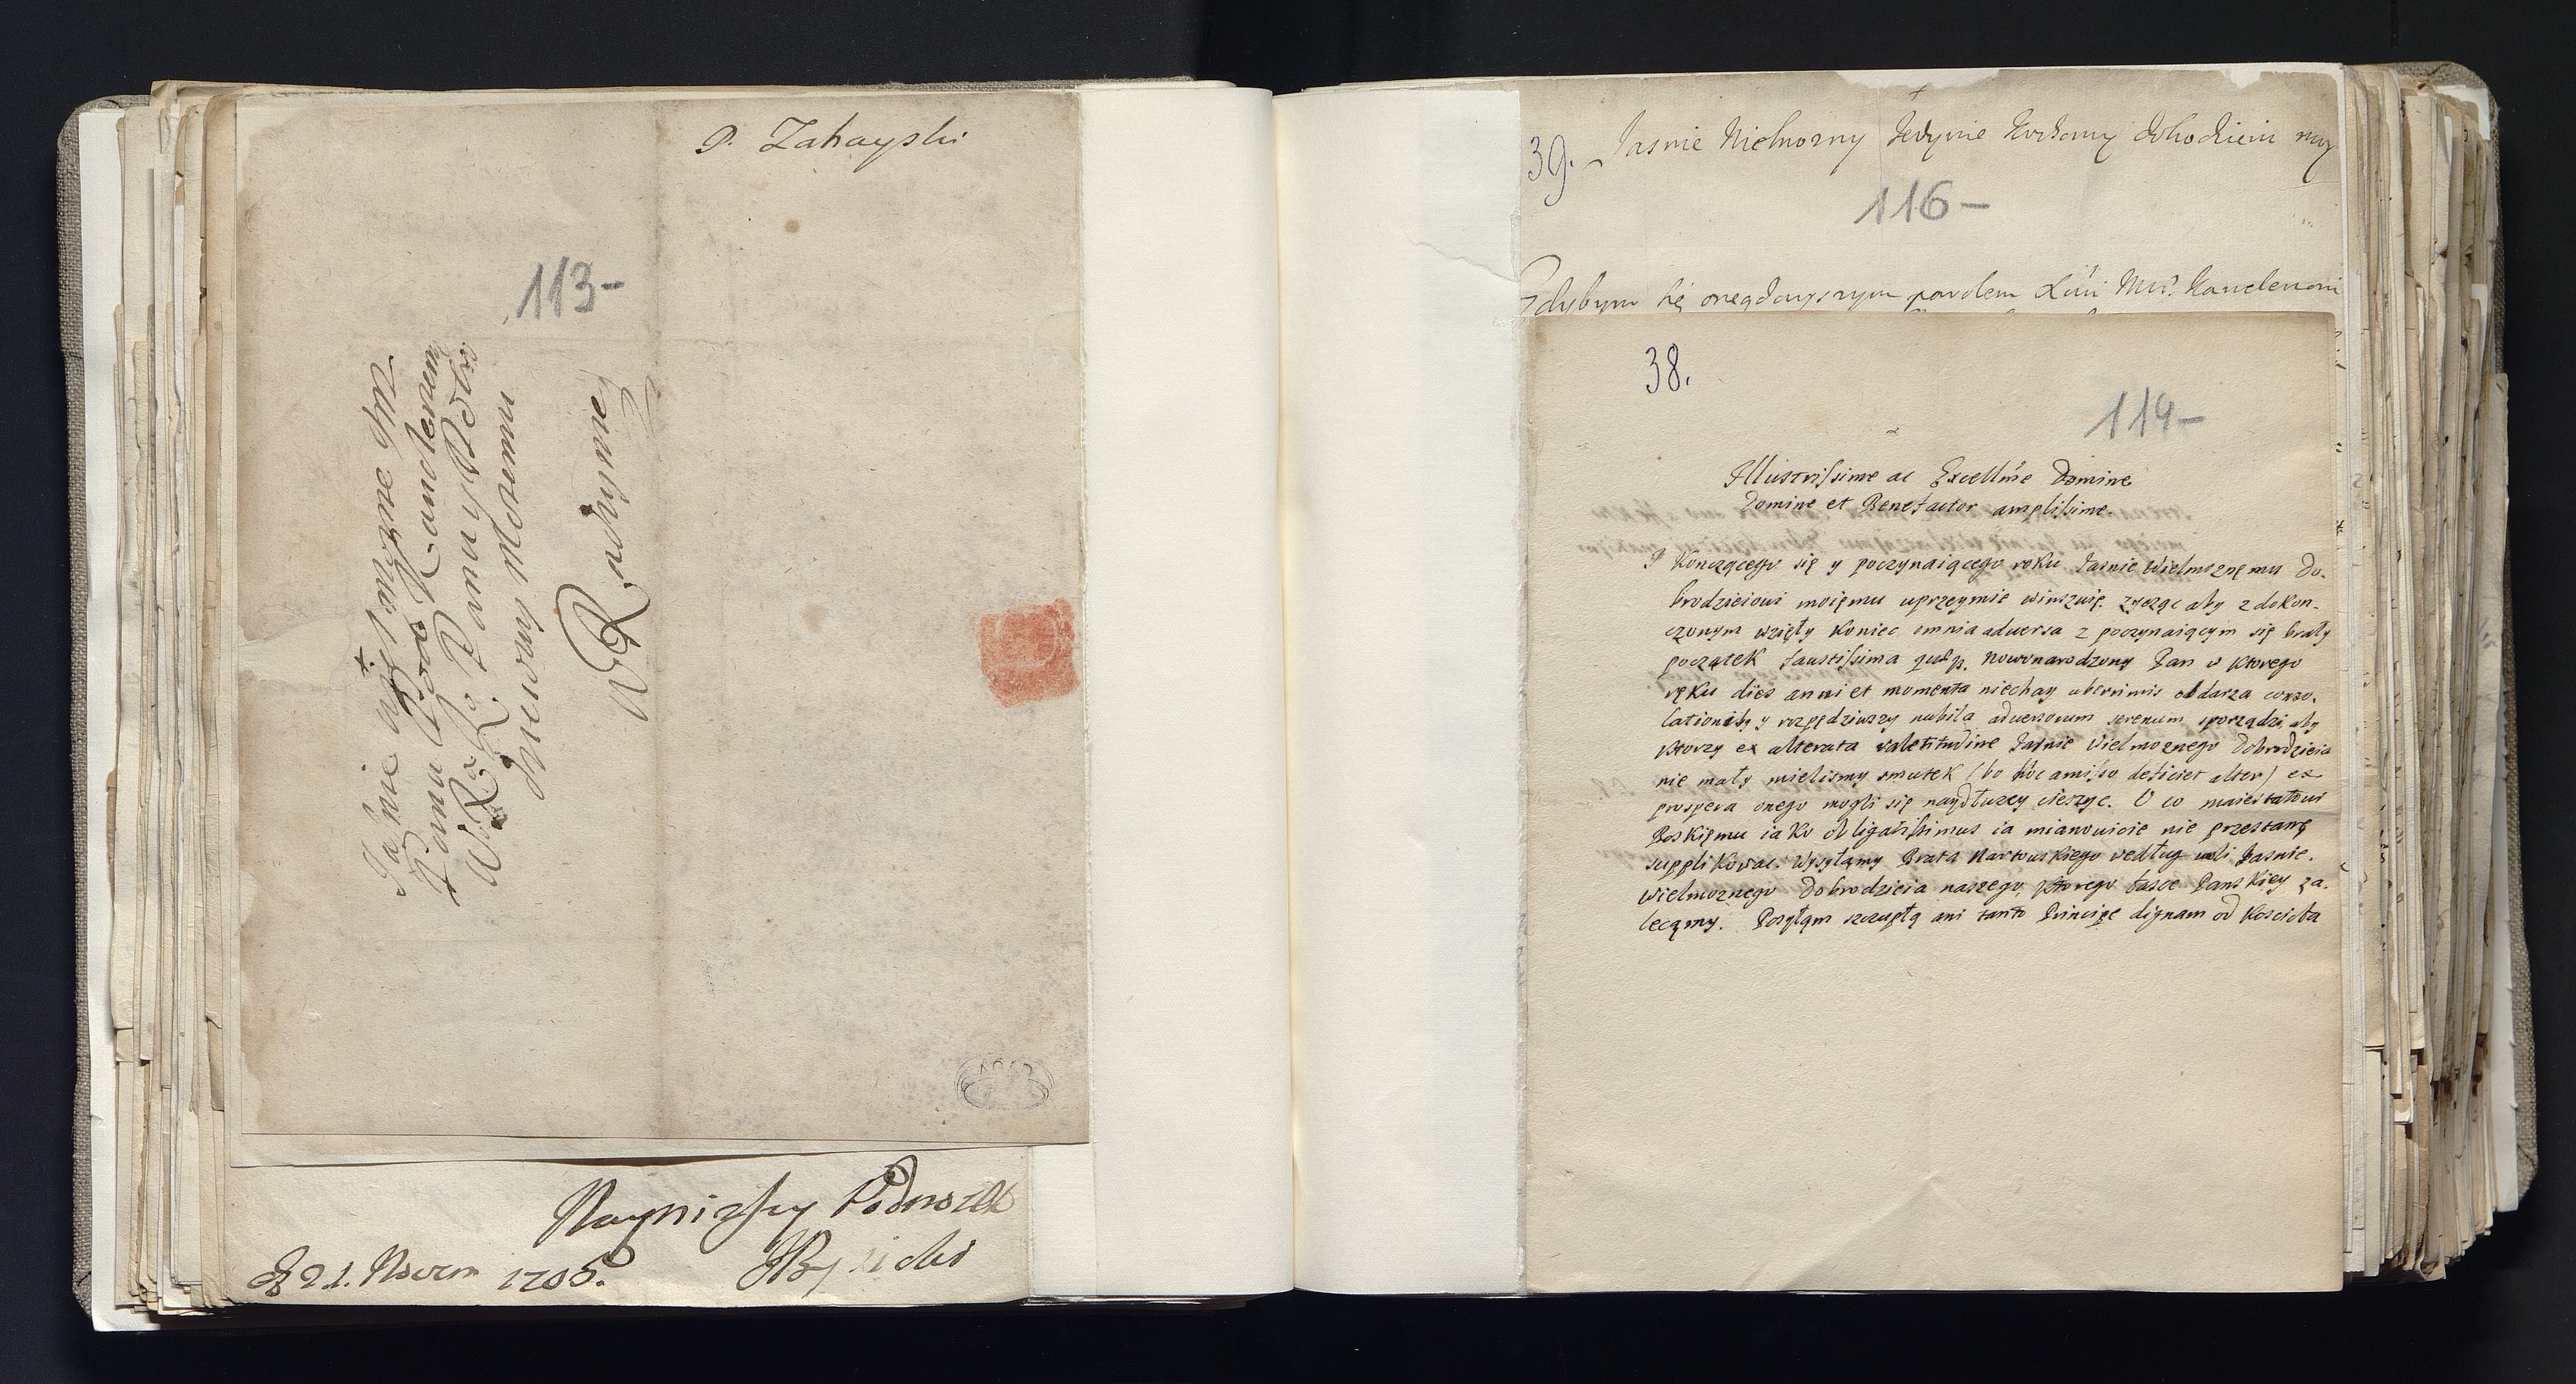 P. Zahayski
113-
Jasnie Wielmozne JM
Panu Panu Kanclerzem
W. X. L. Panu y Dobro
dzieiowy Memu
w Radzyniey
Naynizszy Podnozek
D 21. Novem 1705.
39. Jasnie Wielmozny Jedynie kochany dobrodzieiu moy
116-
Gdybym się
38.
114-
Illustrissime ac Excellme Domine
Domine et Benefactor amplissime.
Z Konczącego się y poczynaiącego roku Jasnie Wielmoznęmu Do-
brodzieiowi moięmu uprzeymie winszuię. zycząc aby z dokon-
czonym wzięły koniec omnia adversa z poczynaiącym się brały
początek faustissima quaeq. Nowonarodzony Pan w ktorego
ręku dies anni et momenta niechay uberrimis obdarza conso-
lationib9 y rozpędziwszy nubila adversorum serenum sporządzi, aby
ktorzy ex alterata valetitudine Jasnie Wielmoznego Dobrodzieia
nie mały mielismy smutek (bo hoc amisso deficiet alter) ex
prospera onego mogli się naydłuzey cieszyc. O co maiestatowi
Boskięmu iako obligatissimus ia mianowicie nie przestanę
supplikowac. Wysyłamy Brata Martowskiego według woli Jasnie.
Wielmoznego Dobrodzieia naszego, ktorego łasce Panskiey za-
lecąmy. Posyłąm szczupłą ani tanto Principe dignam od Koscioła